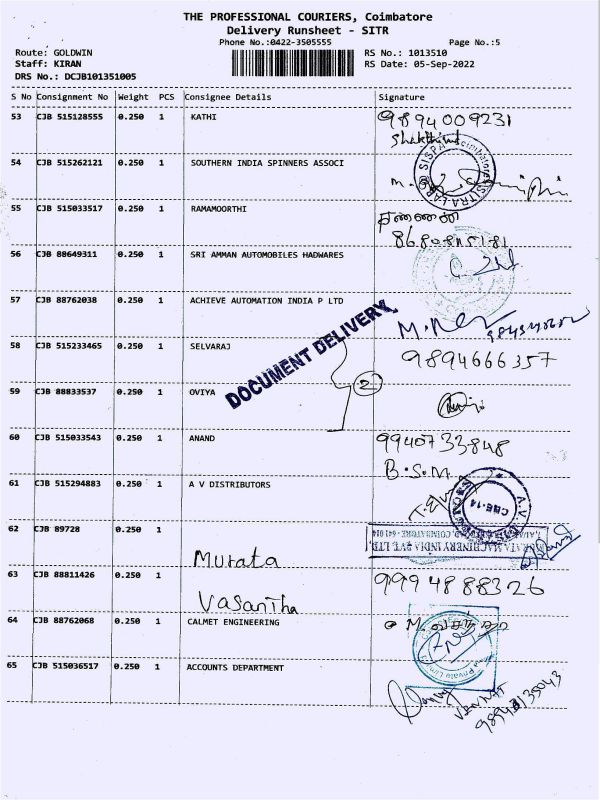 THE PROFESSIONAL COURIERS, Coimbatore
Delivery Runsheet - SITR
Phone No.:0422-3505555 Page No.:5
Route: GOLDWIN RS No.: 1013510
Staff: KIRAN RS Date: 05-Sep-2022
DRS No.: DCJB101351005
S No Consignment No Weight PCS Consignee Details Signature
53 CJB 515128555 0.250 1 KATHI 9894009231
54 CJB 515262121 0.250 1 SOUTHERN INDIA SPINNERS ASSOCI
SISPA Coimbatore SITRA
55 CJB 515033517 0.250 1 RAMAMOORTHI
56 CJB 88649311 0.250 1 SRI AMMAN AUTOMOBILES HADWARES
57 CJB 88762038 0.250 1 ACHIEVE AUTOMATION INDIA P LTD
DOCUMENT DELIVERY
58 CJB 515233465 0.250 1 SELVARAJ 9894666357
2
59 CJB 88833537 0.250 1 OVIYA
60 CJB 515033543 0.250 1 ANAND 9940733848
B.S.M
61 CJB 515294883 0.250 1 A V DISTRIBUTORS
CBE-14
62 CJB 89728 0.250 1 Murata
MURATA MACHINERY INDIA PVT. LTD.
63 CJB 88811426 0.250 1 Vasantha 9994888326
64 CJB 88762068 0.250 1 CALMET ENGINEERING
Private Limited
65 CJB 515036517 0.250 1 ACCOUNTS DEPARTMENT